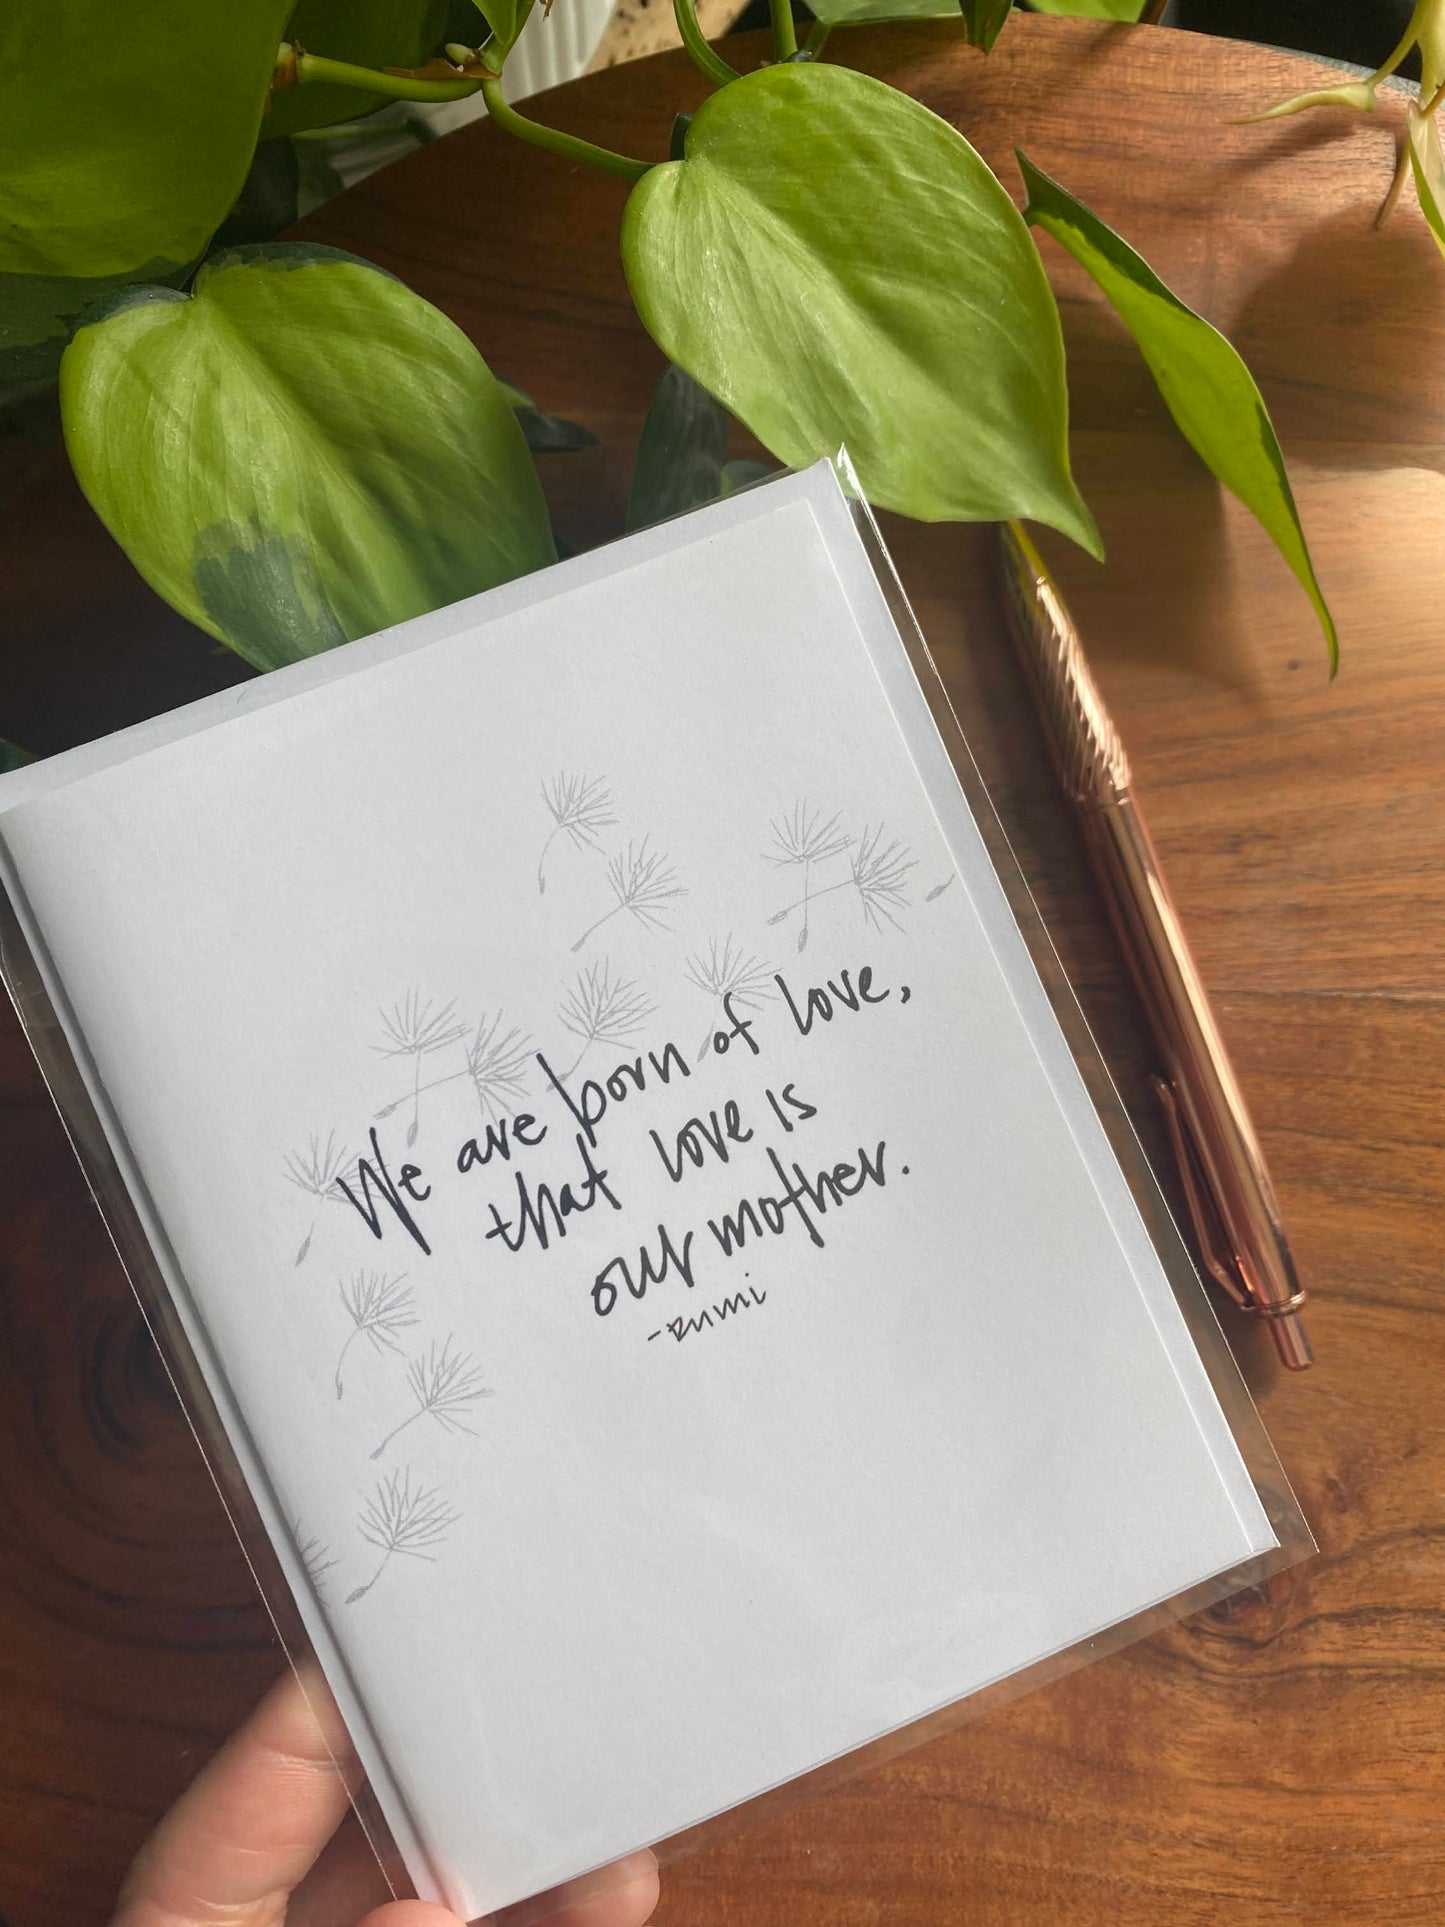 We are born of love,
that love is
our mother.
-Rumi